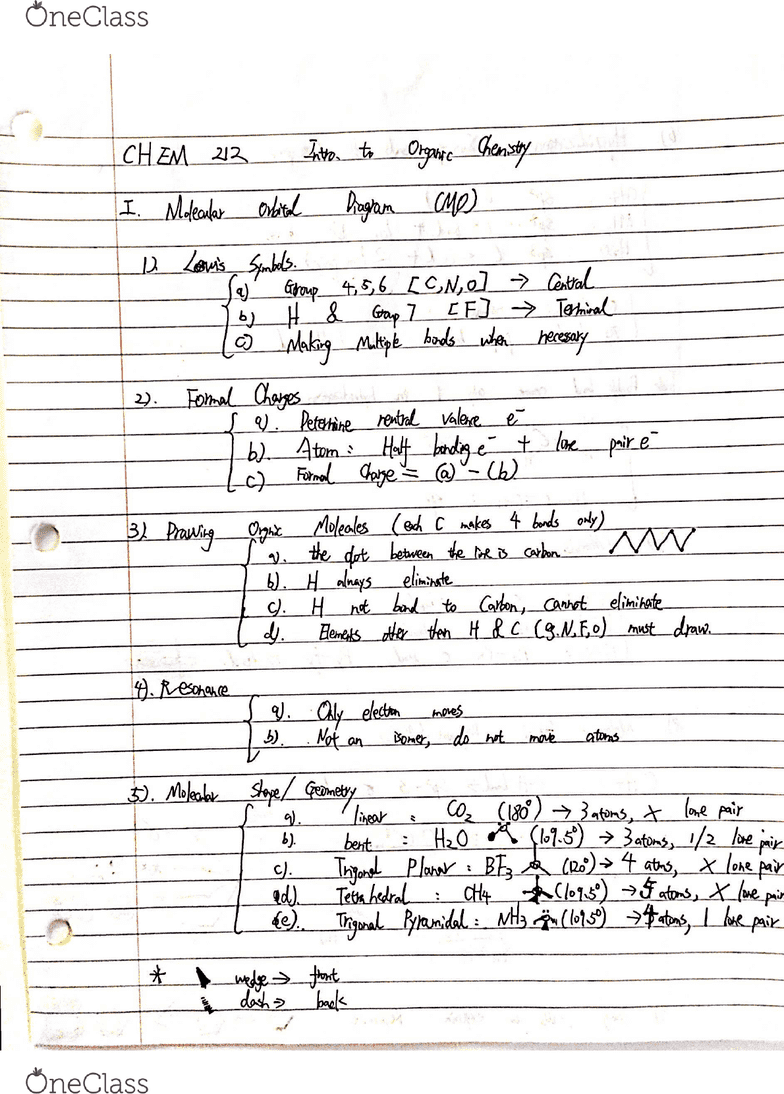 OneClass
CHEM 212 Intro. to Organic Chemistry
I. Molecular Orbital Diagram (MO)
1). Lewis Symbols.
a) Group 4,5,6 [C,N,O] → Central
b) H & Group 7 [F] → Terminal
c) Making Multiple bonds when necessary
2). Formal Charges
a). Determine neutral valence e⁻
b). Atom: Half bonding e⁻ + lone pair e⁻
c) Formal Charge = (a) - (b)
3) Drawing Organic Molecules (each C makes 4 bonds only)
a). the dot between the line is carbon.
b). H always eliminate
c). H not bond to Carbon, cannot eliminate
d). Elements other than H & C (g.N,F,O) must draw.
4). Resonance
a). Only electron moves
b). Not an isomer, do not move atoms
5). Molecular Shape/Geometry
a). linear : CO₂ (180°) → 3 atoms, X lone pair
b). bent : H₂O (109.5°) → 3 atoms, 1/2 lone pair
c). Trigonal Planar : BF₃ (120°) → 4 atms, X lone pair
d). Tetrahedral : CH4 (109.5°) → 5 atoms, X lone pair
e). Trigonal Pyramidal : NH₃ (109.5°) → 4 atoms, 1 lone pair
* wedge → front
dash → back
OneClass